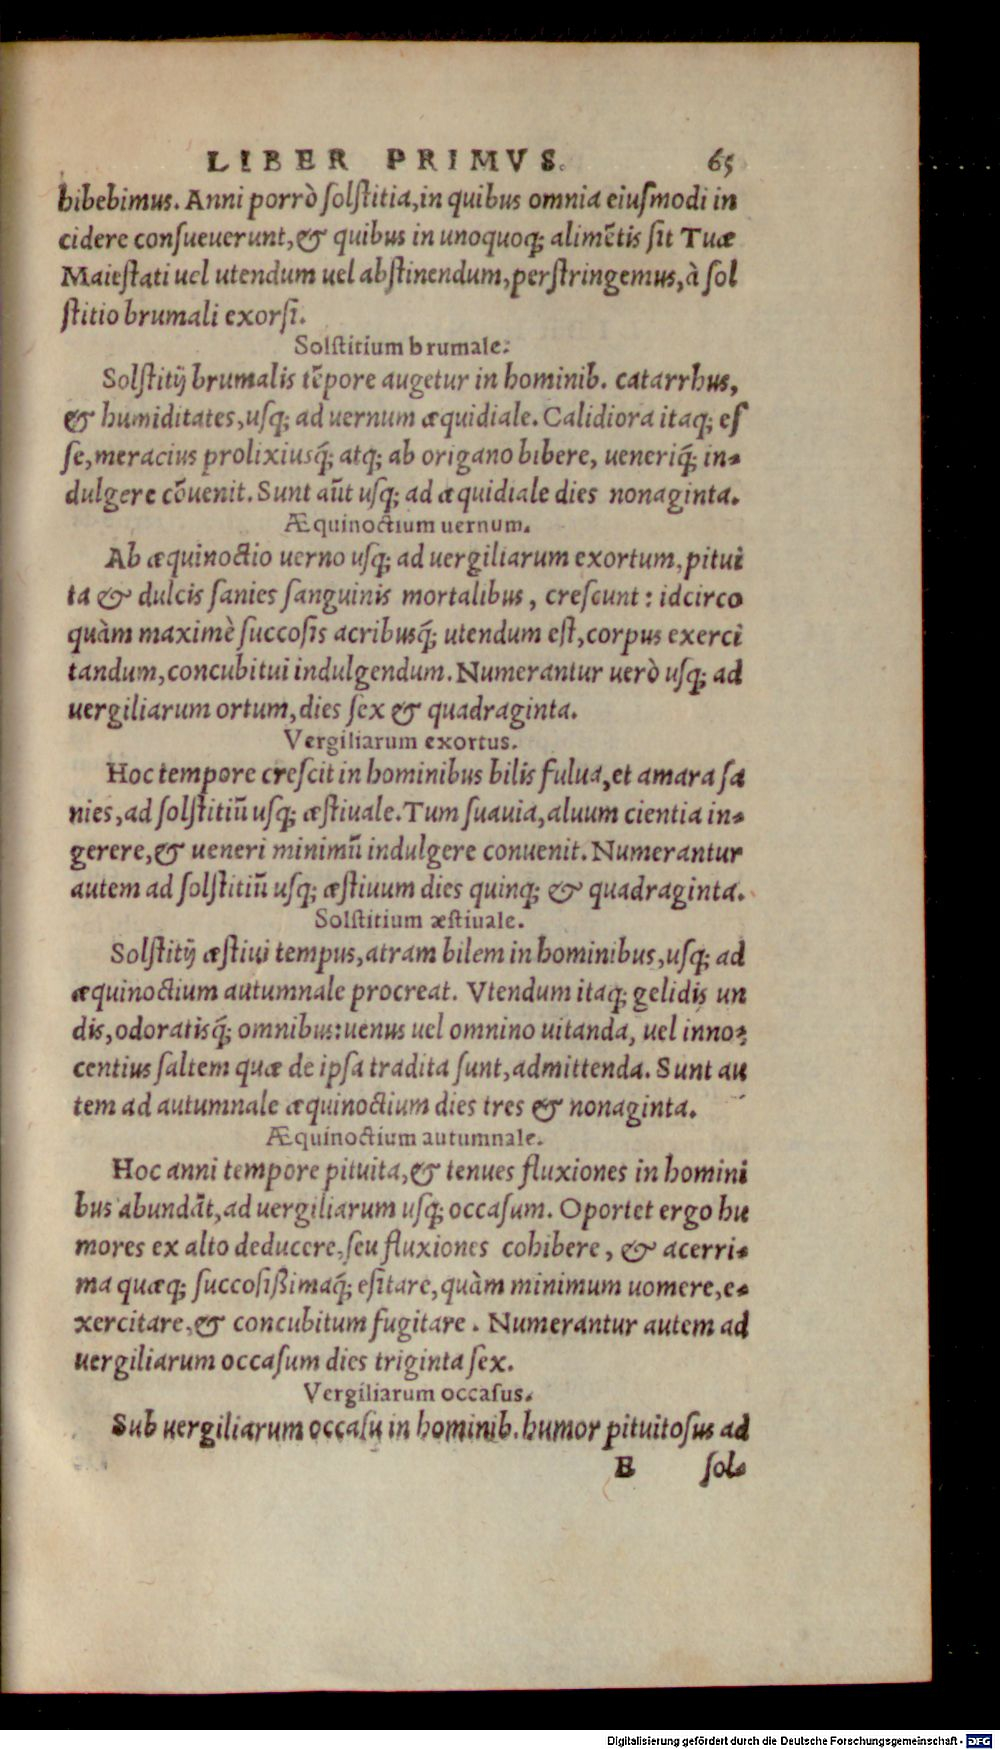 LIBER PRIMVS. 65
bibebimus. Anni porrò ſolſtitia, in quibus omnia eiuſmodi in
cidere conſueuerunt, & quibus in unoquoq; alimẽtis ſit Tuæ
Maieſtati uel utendum uel abſtinendum, perſtringemus, à ſol
ſtitio brumali exorſi.
Solſtitium brumale.
Solſtitij brumalis tẽpore augetur in hominib. catarrhus,
& humiditates, uſq; ad uernum æquidiale. Calidiora itaq; eſ
ſe, meracius prolixiusq́; atq; ab origano bibere, ueneriq́; in-
dulgere cõuenit. Sunt aũt uſq; ad æquidiale dies nonaginta.
Æquinoctium uernum.
Ab æquinoctio uerno uſq; ad uergiliarum exortum, pitui
ta & dulcis ſanies ſanguinis mortalibus, creſcunt: idcirco
quàm maximè ſuccoſis acribusq́; utendum eſt, corpus exerci
tandum, concubitui indulgendum. Numerantur uerò uſq; ad
uergiliarum ortum, dies ſex & quadraginta.
Vergiliarum exortus.
Hoc tempore creſcit in hominibus bilis fulua, et amara ſa
nies, ad ſolſtitiũ uſq; æſtiuale. Tum ſuauia, aluum cientia in-
gerere, & ueneri minimũ indulgere conuenit. Numerantur
autem ad ſolſtitiũ uſq; æſtiuum dies quinq; & quadraginta.
Solſtitium æſtiuale.
Solſtitij æſtiui tempus, atram bilem in hominibus, uſq; ad
æquinoctium autumnale procreat. Vtendum itaq; gelidis un
dis, odoratisq́; omnibus: uenus uel omnino uitanda, uel inno-
centius ſaltem quæ de ipſa tradita ſunt, admittenda. Sunt au
tem ad autumnale æquinoctium dies tres & nonaginta.
Æquinoctium autumnale.
Hoc anni tempore pituita, & tenues fluxiones in homini
bus abundãt, ad uergiliarum uſq; occaſum. Oportet ergo hu
mores ex alto deducere, ſeu fluxiones cohibere, & acerri-
ma quæq; ſuccoſißimaq́; eſitare, quàm minimum uomere, e-
xercitare, & concubitum fugitare. Numerantur autem ad
uergiliarum occaſum dies triginta ſex.
Vergiliarum occaſus.
Sub uergiliarum occaſu in hominib. humor pituitoſus ad
E ſol-
Digitalisierung gefördert durch die Deutsche Forschungsgemeinschaft - DFG